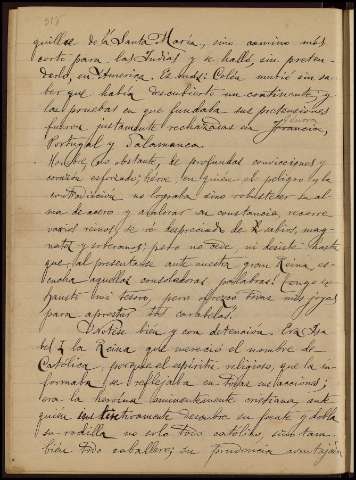 quillas de la Santa María, sino camino más
corto para las Indias y se halló, sin preten-
derlo, en América. Es más: Colón murió sin sa-
ber que había descubierto un continente; y
las pruebas en que fundaba sus pretensiones
fueron justamente rechazadas en Génova
Portugal y Salamanca.
Hombre, no obstante, de profundas convicciones y
corazón esforzado; héroe en quien el peligro y la
contradicción no lograba sino robustecer su al-
ma de acero y avalorar su constancia, recorre
varios reinos, se ve despreciado de sabios, mag-
nates y soberanos; pero no cede ni desiste hasta
que al presentarse ante nuestra gran Reina, es-
cucha aquellas consoladoras palabras: Tengo ex-
hausto mi tesoro, pero ofrezco todas mis joyas
para aprestar tus carabelas.
Nótese bien y con detención. Era Isa-
bel I la Reina que mereció el nombre de
Católica, porque el espíritu religioso, que la in-
formaba se reflejaba en todas sus acciones;
era la heroína eminentemente cristiana ante
quien instintivamente descubre su frente y dobla
su rodilla no solo todo católico, sino tam-
bién todo caballero; su prudencia aventajó